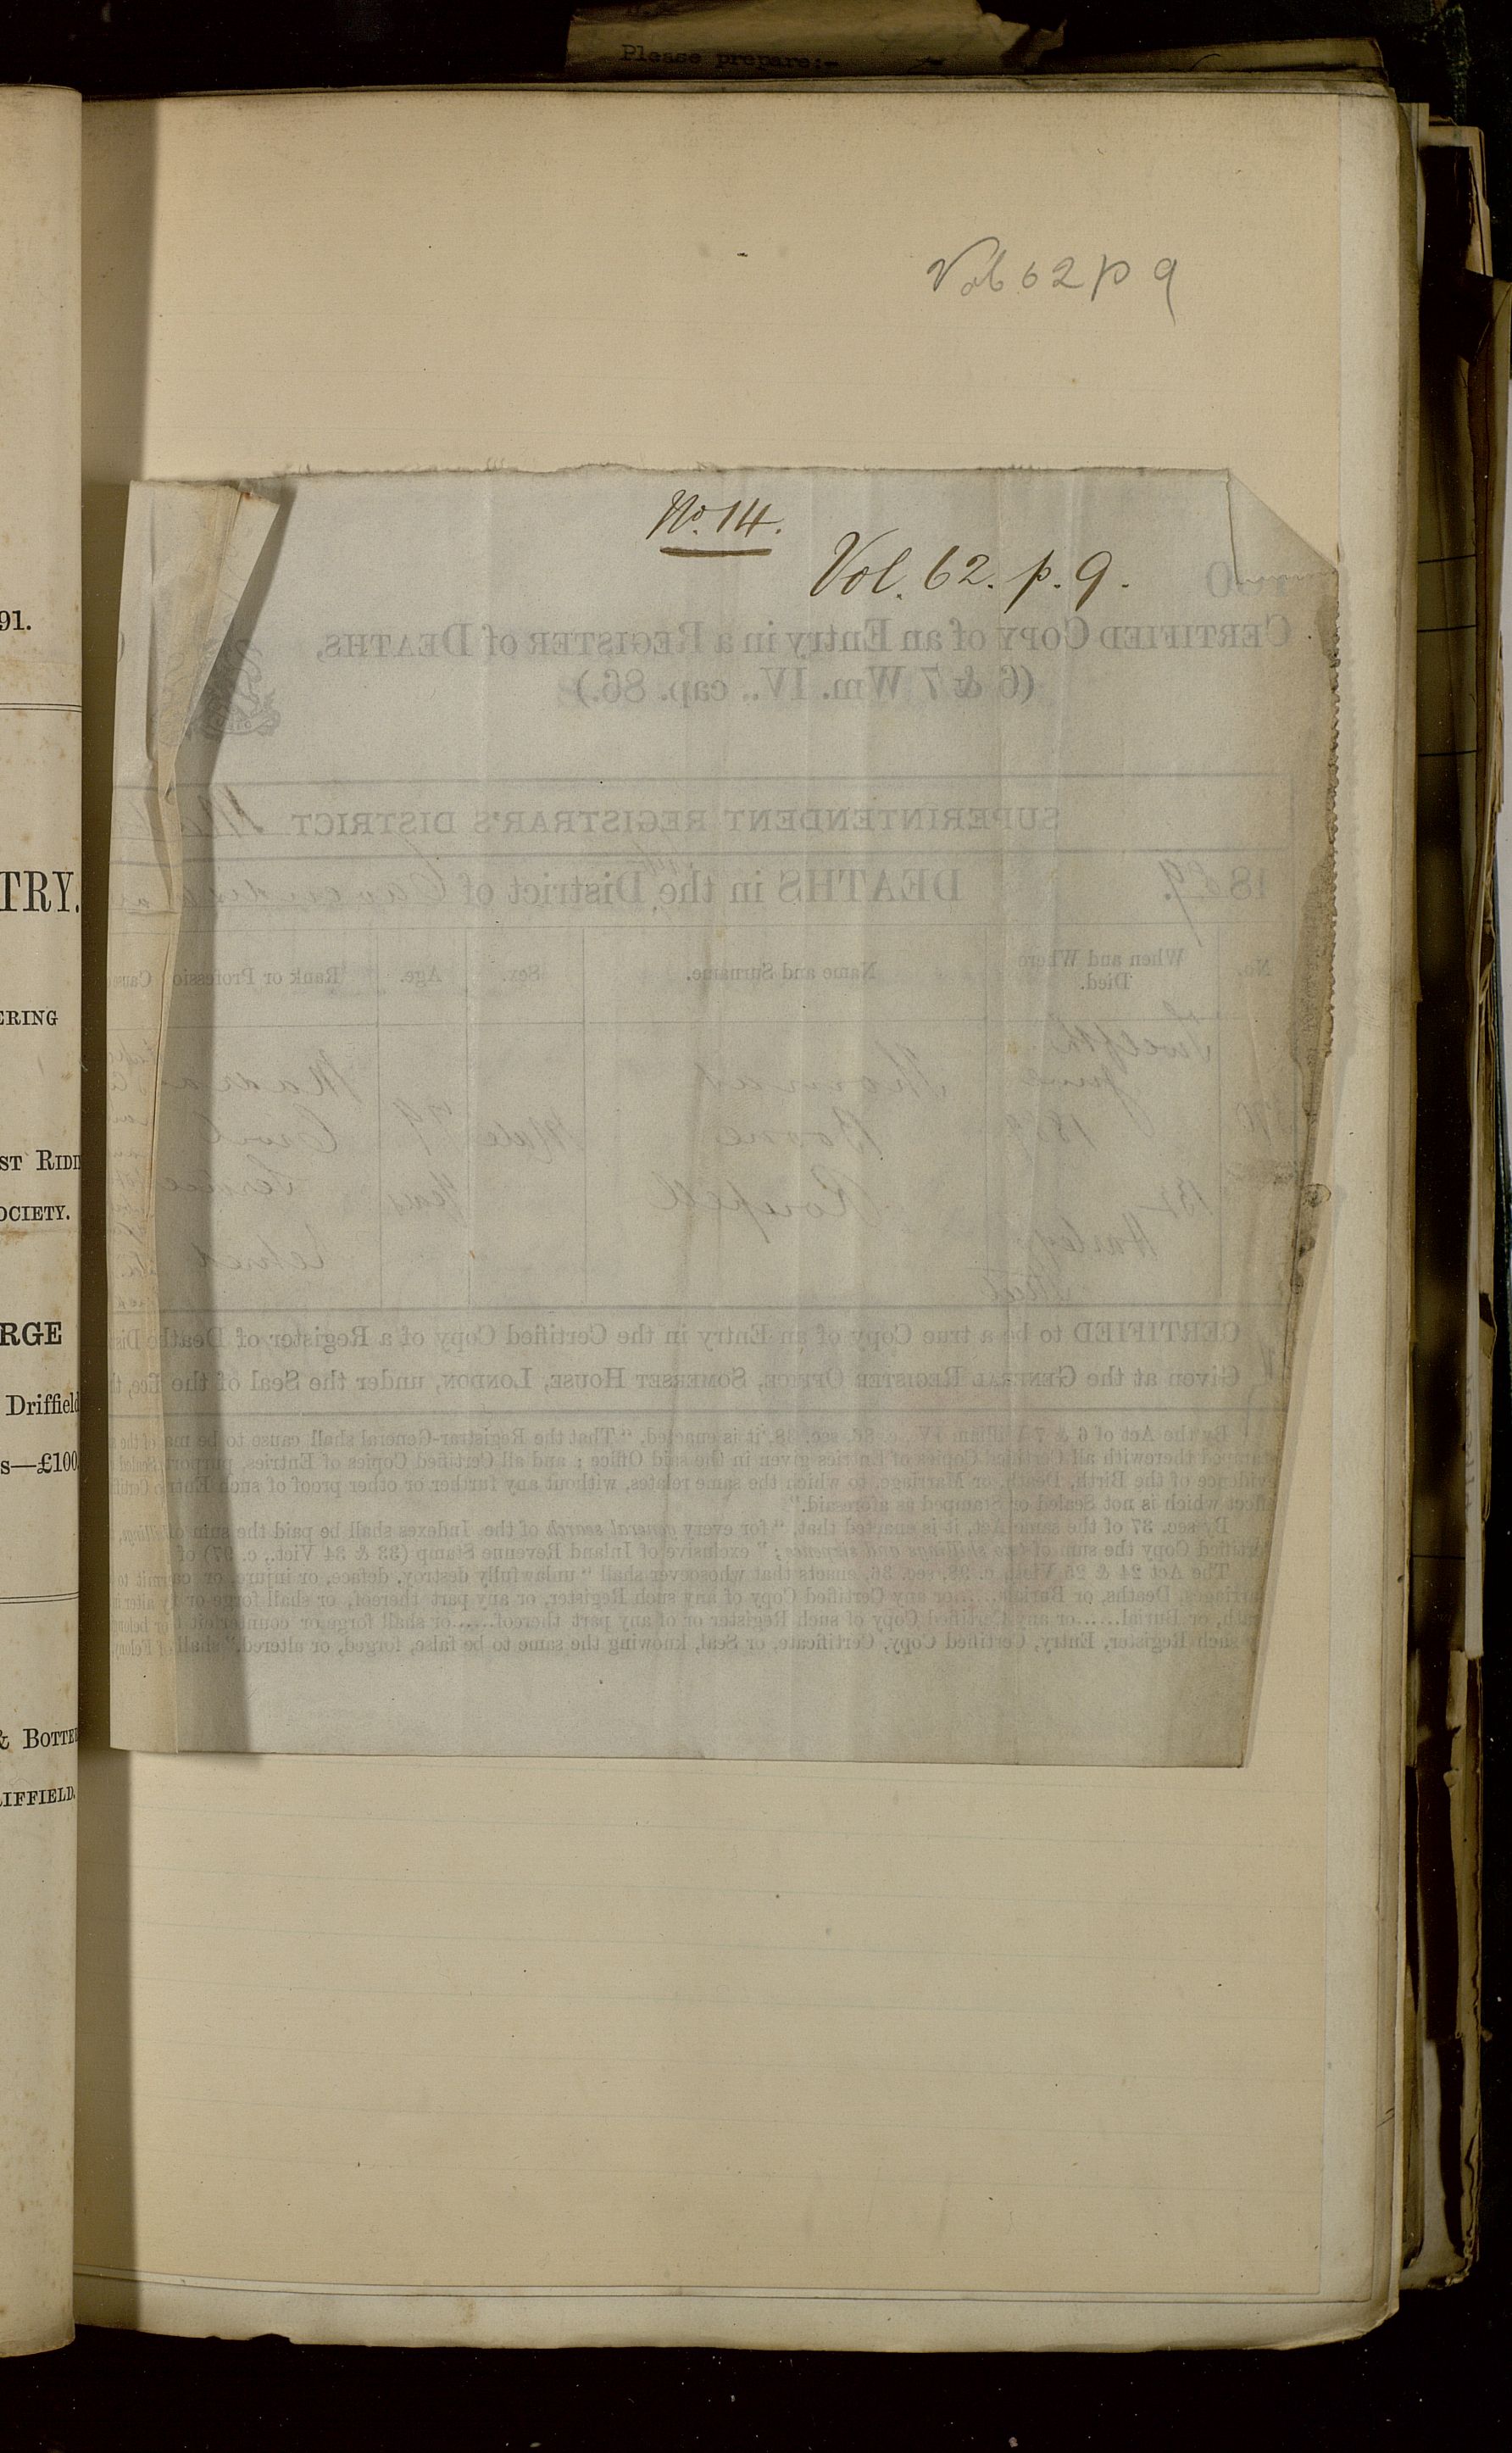 Please prepare:-
Vol 62 p 9
No. 14.
Vol. 62. p. 9.
CERTIFIED COPY of an Entry in a REGISTER of DEATHS.
(6 & 7 Wm. IV., cap. 86.)
SUPERINTENDENT REGISTRAR'S DISTRICT
1889. DEATHS in the Sub-District of Cavendish
No. When and Where Died. Name and Surname. Sex. Age. Rank or Profession Cause
Twelfth June 1889 Harley Street Thomas Boone Roupell Male 79 Years Madras Civil Service retired
CERTIFIED to be a true Copy of an Entry in the Certified Copy of a Register of Deaths
Given at the GENERAL REGISTER OFFICE, SOMERSET HOUSE, LONDON, under the Seal of the
By the Act of 6 & 7 William IV., c. 86, sec. 38, it is enacted, "That the Registrar-General shall cause to be
stamped therewith all Certified Copies of Entries given in the said Office; and all Certified Copies of Entries, purport
evidence of the Birth, Death, or Marriage, to which the same relates, without any further or other proof of such Entry
effect which is not Sealed or Stamped as aforesaid."
By sec. 37 of the same Act, it is enacted that, "for every general search of the Indexes shall be paid the sum of
Certified Copy the sum of two shillings and sixpence;" exclusive of Inland Revenue Stamp (33 & 34 Vict., c. 97) of
The Act 24 & 25 Vict., c. 98, sec. 36, enacts that whosoever shall "unlawfully destroy, deface, or injure, or
Marriages, Deaths, or Burials......or any Certified Copy of any such Register, or any part thereof, or shall forge or
Death, or Burial......or any Certified Copy of such Register or of any part thereof......or shall forge or counterfeit
such Register, Entry, Certified Copy, Certificate, or Seal, knowing the same to be false, forged, or altered," shall
91.
TRY.
ERING
ST RIDI
OCIETY.
RGE
Driffield
s—£100
& BOTTE
IFFIELD.